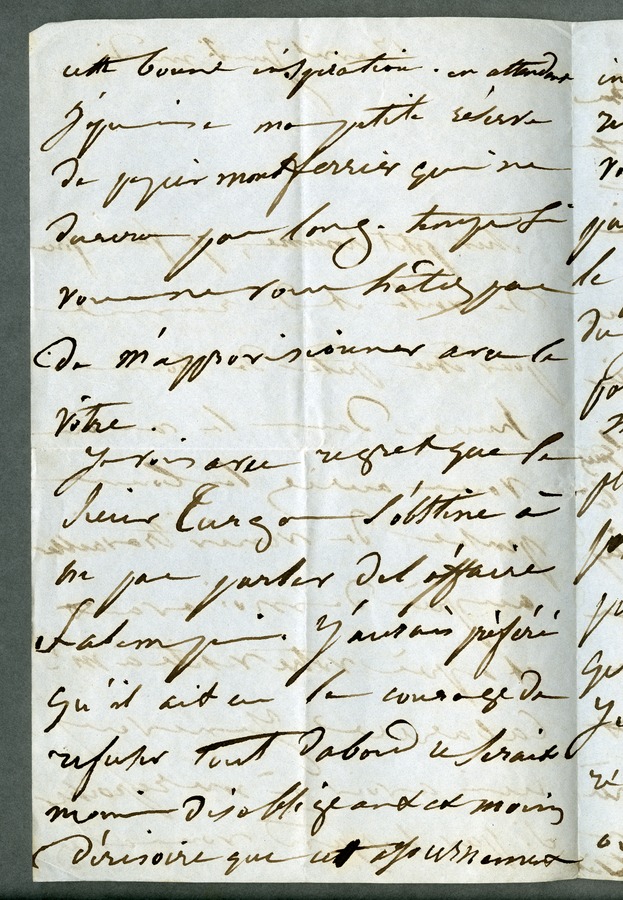 cette bonne inspiration. en attendant
J'épuise ma petite réserve
de papier montferrier qui ne
durera pas long-temps si
vous ne vous hâtez pas
de m'approvisionner avec le
vôtre.
Je vois avec regret que le
sieur Curgon s'obstine à
ne pas parler de l'affaire
J'aurais préféré
qu'il ait eu le courage de
refuser tout d'abord ce serait
moins désobligeant et moins
dérisoire que cet ajournement